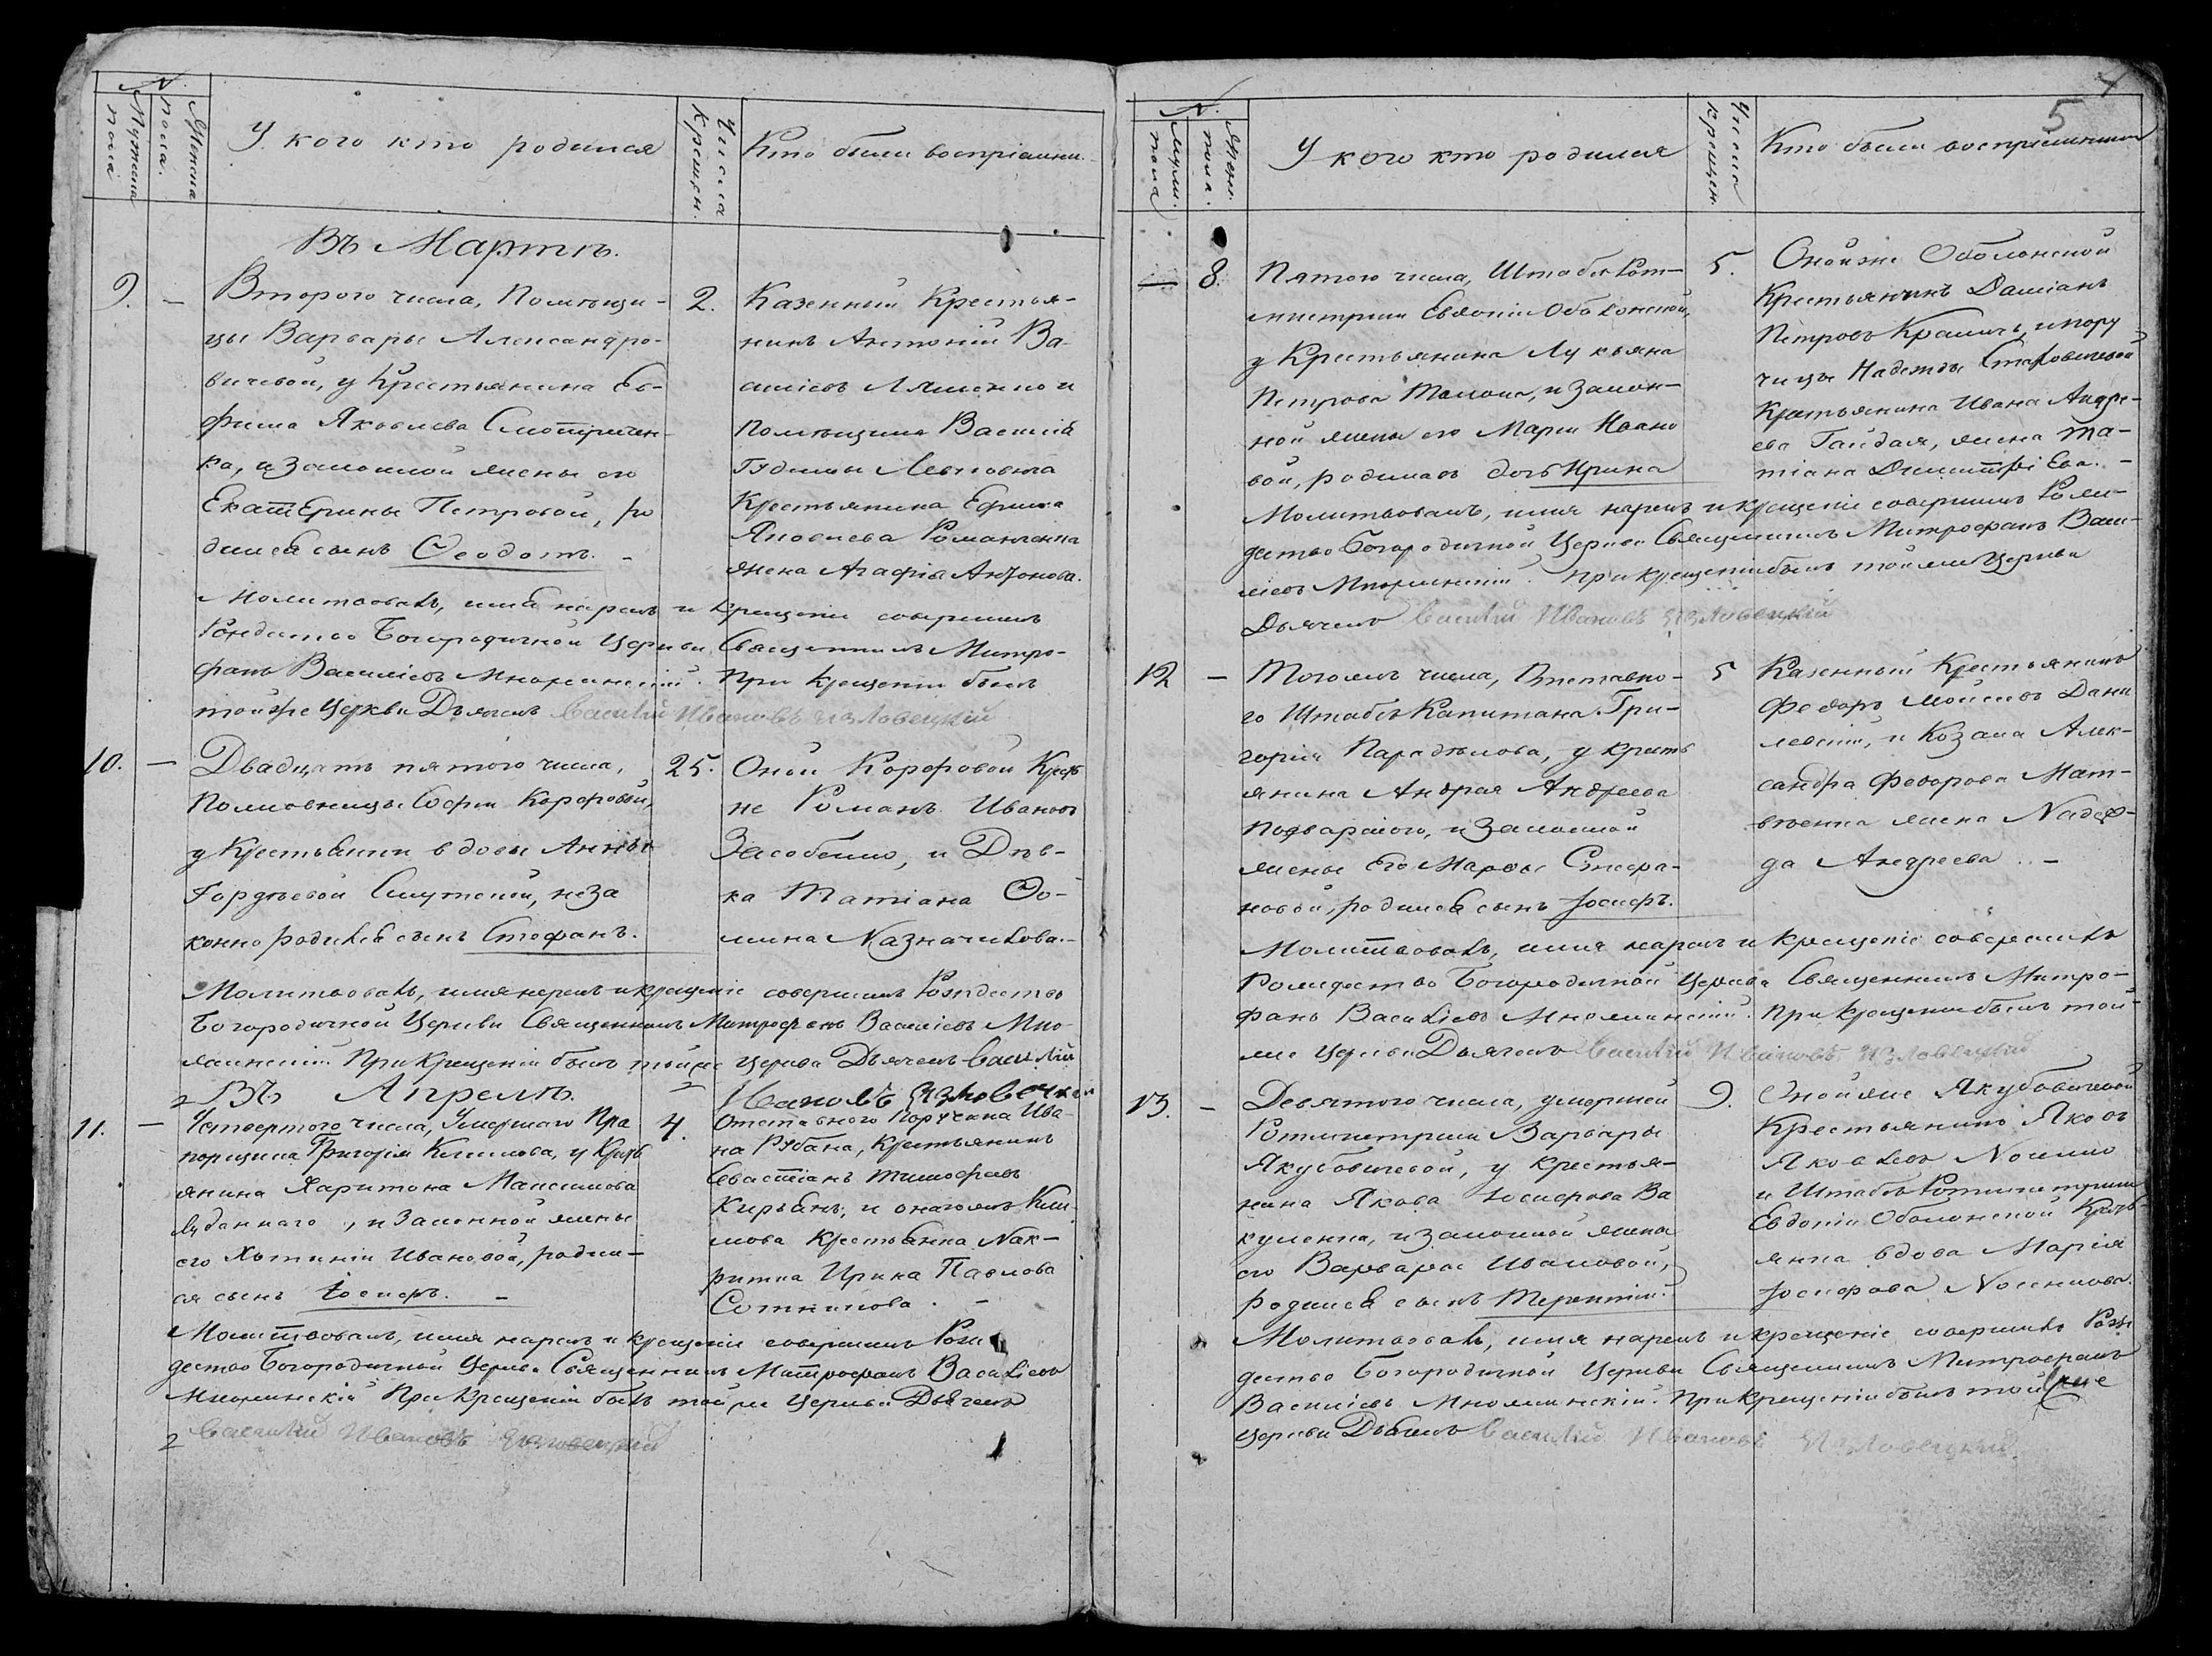 №
Мужеска пола
Женска пола.
У кого кто родился
Числа крещен.
Кто были воспріемни.
Въ Мартѣ.
9. —
Втораго числа, Помѣщи-
цы Варвары Александро-
вичевой, у Крестьянина Ев-
фима Яковлева
ка, и законной жены его
Екатерины Петровой, ро
дился сынъ Ѳеодотъ. -
2.
Казенный Крестья-
нинъ Антоній Ва-
силіевъ Ляшенко и
Помѣщика Василія
Гудимы Левповича
Крестьянина Ефима
Яковлева Романченка
жена Агафія Антонова.
Молитвовалъ, имя нарекъ и крещеніе совершилъ
Рождество Богородичной Церкви Священникъ Митро-
фанъ Василіевъ Множинскій. При крещеніи былъ
тойже Церкви Дьячекъ Василій Ивановъ Изловецкій
10. —
Двадцать пятого числа,
Полковницы Софіи Корфовой,
у Крестьянки вдовы Анны
Гордѣевой Смутской, неза
конно родился сынъ Стефанъ.
25.
Оной Корфовой Кресть
не Романъ Ивановъ
Засобенко, и Дѣв-
ка Татіана Ѳо-
мина Казначикова.-
Молитвовалъ, имя нарекъ и крещеніе совершилъ Рождество
Богородичной Церкви Священникъ Митрофанъ Василіевъ Мно-
жинскій. При Крещеніи былъ тойже Церкви Дьячекъ Василій
Ивановъ Изловецкій
Въ Апрелѣ.
11. —
Четвертого числа, Умершаго Пра
порщика Григорія Климова, у Кресть
янина Харитона Максимова
, и Законной жены
его Хотиніи Ивановой, родил-
ся сынъ Іосифъ. -
4.
Отставного Поручика Ива-
на Рубана, Крестьянинъ
Севастіанъ Тимофеевъ
Кирьянъ, и онагожъ Кли-
мова Крестьянка
Ирина Павлова
Сотникова. -
Молитвовалъ, имя нарекъ и крещеніе совершилъ Рож
дество Богородичной Церкви Священникъ Митрофанъ Василіевъ
Множинскій При Крещеніи былъ тойже Церкви Дьячекъ
Василій Ивановъ Изловецкій
4
5
№.
Мужес. пола
Женс. пола.
У кого кто родился
Числа крещен.
Кто были воспріемники
— 8.
Пятого числа, Штабсъ Рот-
мистрши Евдокіи Оболонской,
у Крестьянина Лукьяна
Петрова Танана, и Закон-
ной жены его Маріи Ивано
вой, родилась дочь Ирина
5.
Онойже Оболонской
Крестьянинъ Даміанъ
Петровъ Крамичъ, и пору
чицы Надежды
Крестьянина Ивана Андре-
ева Гайдая, жена Та-
тіана Димитріева. -
Молитвовалъ, имя нарекъ и крещеніе совершилъ Рожи-
дество Богородичной Церкви Священникъ Митрофанъ Васи-
ліевъ Множинскій. При крещеніи былъ тойже Церкви
Дьячекъ Василій Ивановъ Изловецкій
12 —
Тогожъ числа, Отставно-
го Штабсъ Капитана Гри-
горія Парадѣлова, у кресть
янина Андрея Андреева
Подварского, и законной
жены Его Марфы Стефа-
новой, родился сынъ Іосифъ.
5
Казенный Крестьянинъ
Федоръ Мойсеевъ Дани
левскій, и Козака Алек-
сандра Федорова Мат-
вѣенка жена Надеж-
да Андреева. -
Молитвовалъ, имя нарекъ и крещеніе совершилъ
Рождество Богородичной Церкви Священникъ Митро-
фанъ Василіевъ Множинскій. При крещеніи былъ той
же Церкви Дьячекъ Василій Ивановъ Изловецкій
13. —
Девятого числа, умершей
Ротмистрши Варвары
Якубовичевой, у Крестья-
нина Якова Іосифова Ва
куленка, и законной жены
его Варвары Ивановой,
родился сынъ Терентій.
9.
Онойже Якубовичевой
Крестьянинъ Яковъ
Яковлевъ Носенко
и Штабсъ Ротмистрши
Евдокіи Оболонской Кресть-
янка вдова Марія
Іосифова Носенкова.
Молитвовалъ, имя нарекъ и крещеніе совершилъ Рож
дество Богородичной Церкви Священникъ Митрофанъ
Василіевъ Множинскій. При Крещеніи былъ тойже
Церкви Дьячекъ Василій Ивановъ Изловецкій